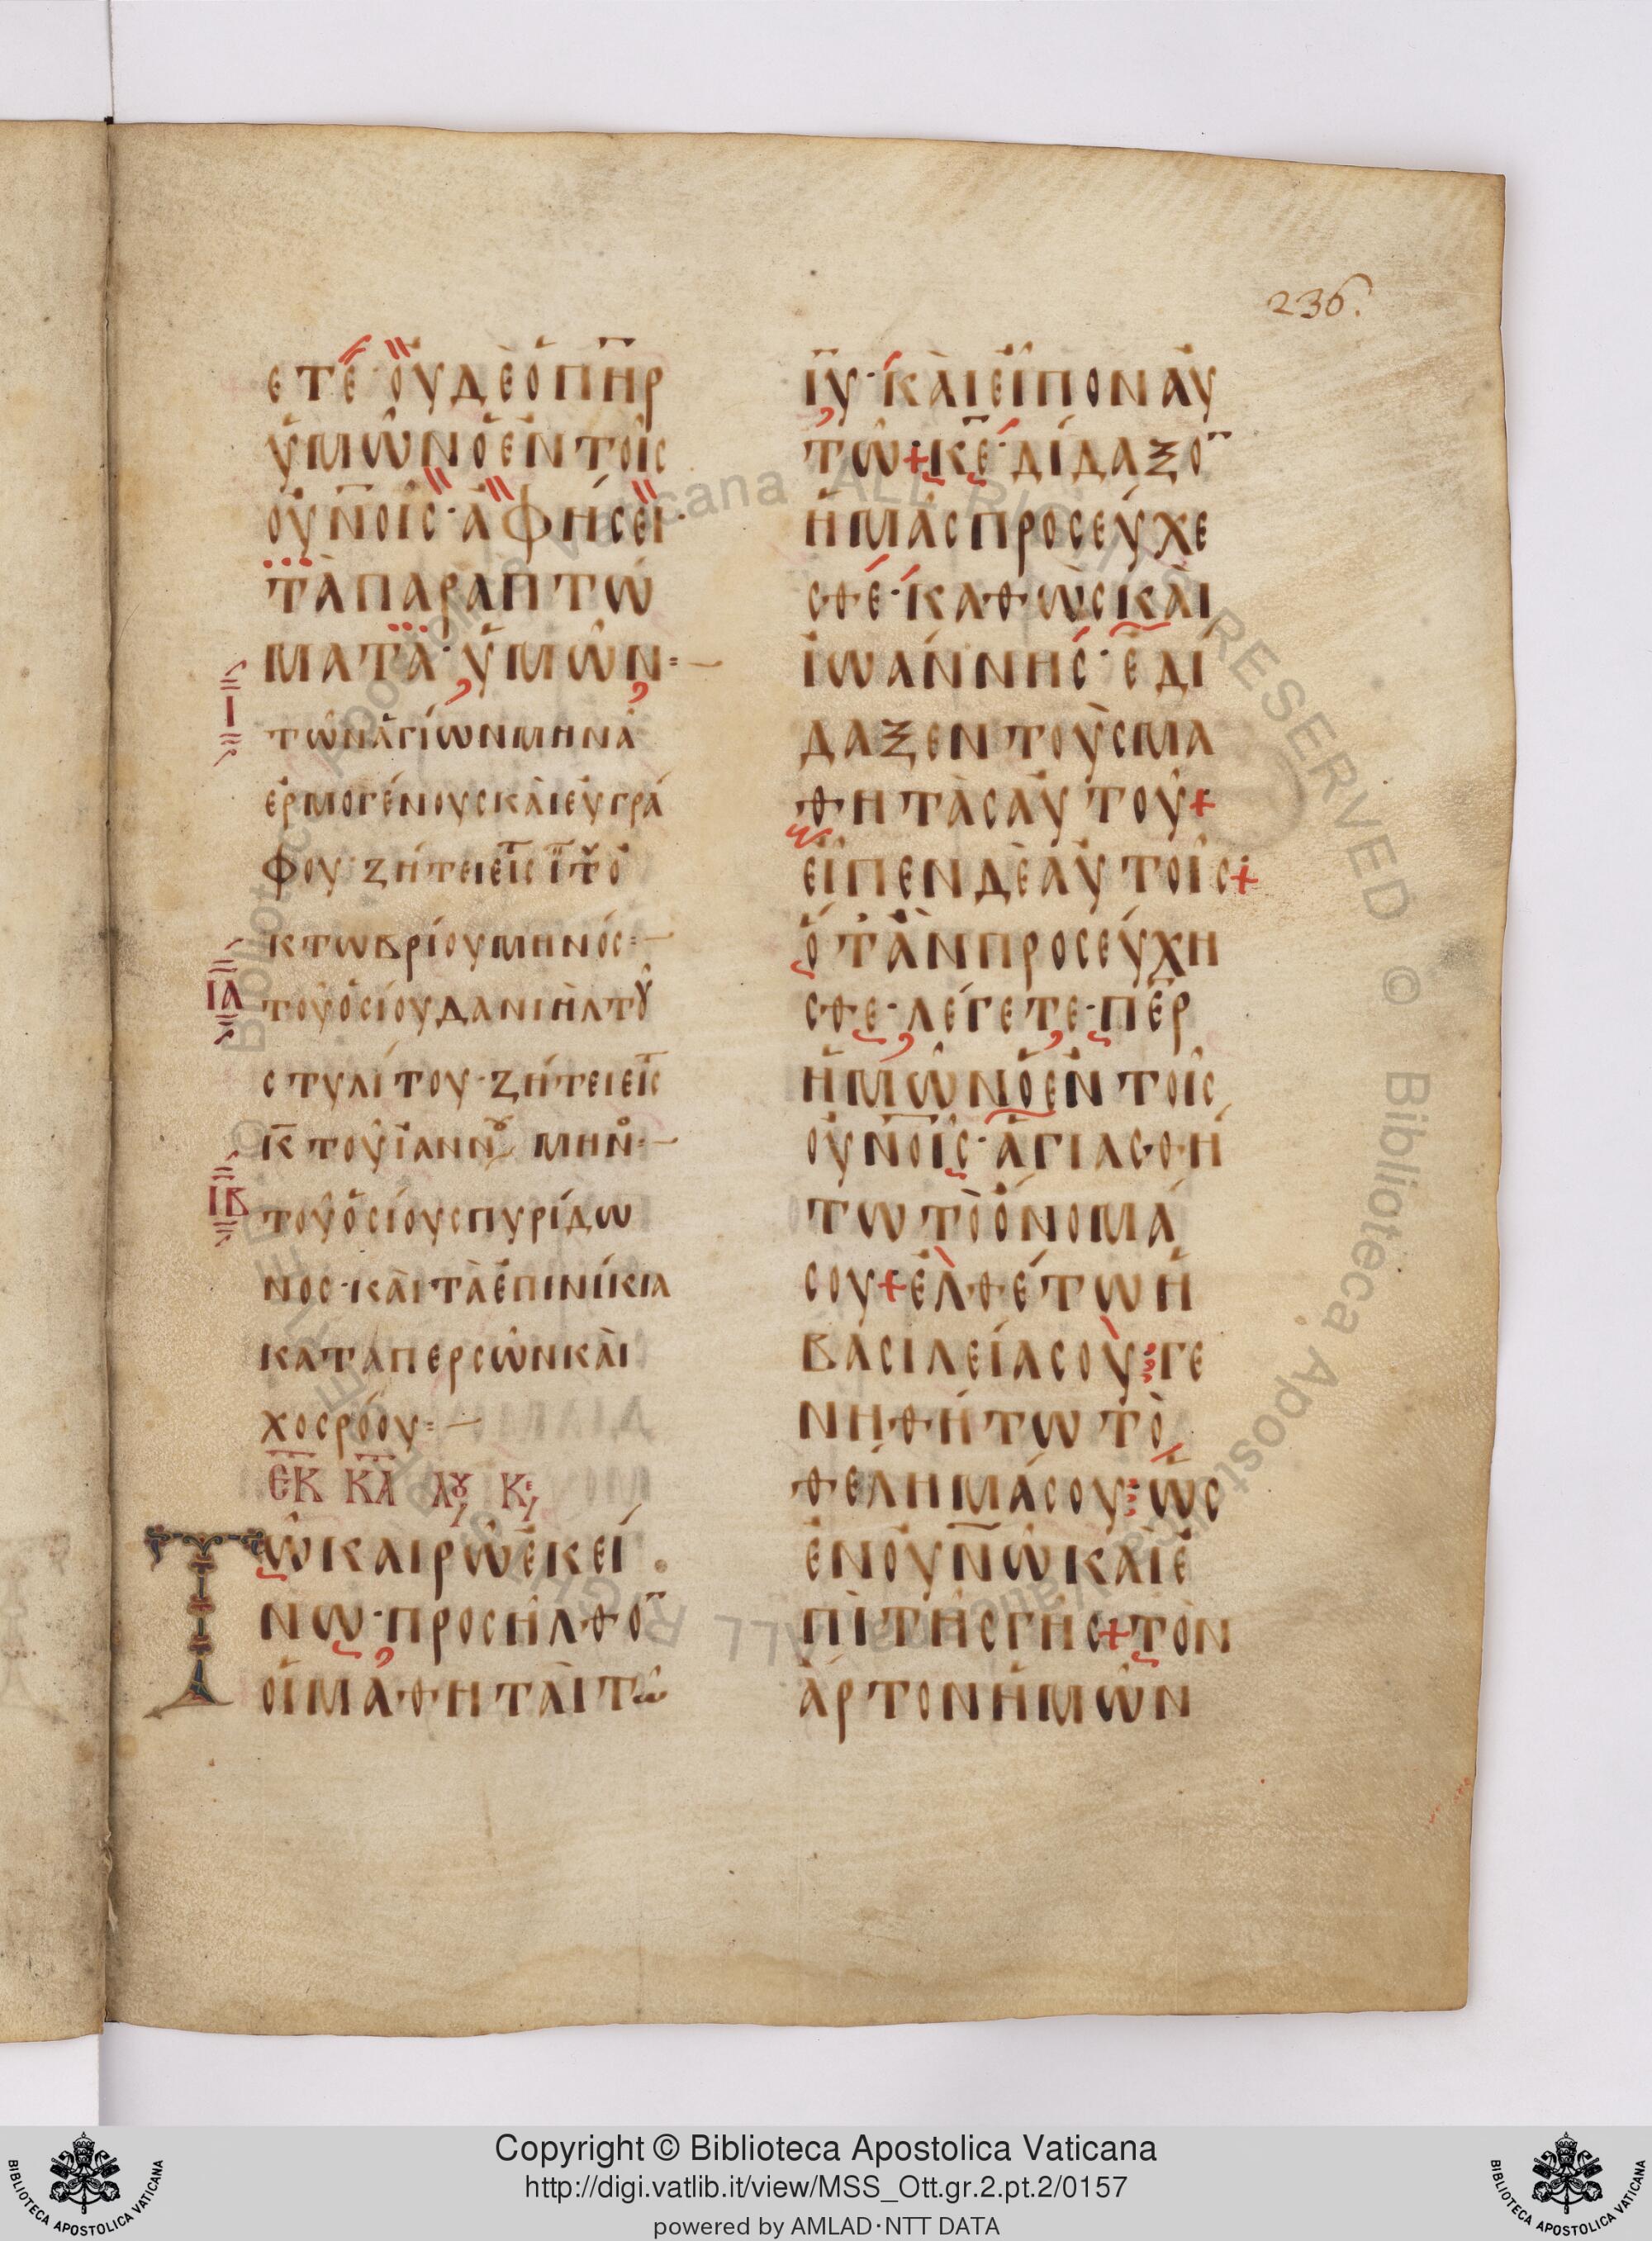 236.
ετέ· ὀυδὲ ὁ πη̅ρ
ὑμῶν ὁ ἐν τοῖς
ουν̅οῖς· ἀφήσει·
τὰ παραπτώ
ματα· ὑμῶν=—
Ι
τῶν ἁγίων μηνᾶ
ἑρμογένους καὶ ἐυγρά
φου· ζήτει εἰς ι̅ τοῦ ὀ
κτωβρίου μηνός=—
ΙΑ
τοῦ ὁσίου δανιὴλ τοῦ
στυλίτου· ζήτει εἰς
κ̅ τοῦ ἰαννου μην=—
ΙΒ
τοῦ ὁσίου σπυρίδω
νος· καὶ τὰ ἐπινίκια
κατὰ περσῶν καὶ
χοσρόου=—
ἐκ κλ λου κε
Τῶ καιρῶ ἐκεί
νω· προσῆλθο̅
οἱ μαθηταὶ τῶ
ιυ̅· καὶ εἶπον αὐ
τῶ+ κε̅· δίδαξο̅
ἡμᾶς προσεύχε
σθέ· καθὼς καὶ
ἰωάννης· ἐδί
δαξεν τοὺς μα
θητὰς αὐτοῦ+
εἶπεν δὲ αὐτοῖς+
ὅταν προσεύχη
σθε· λέγετε· πε̅ρ
ἡμῶν ὁ ἐν τοῖς
ουν̅οῖς· ἁγιασθή
τω τὸ ὄνομά
σου+ ἐλθέτω ἡ
βασιλεία σοὺ: γε
νηθήτω τὸ
θέλημά σου: ὡς
ἐν ουν̅ῶ καὶ ἐ
πὶ τῆς γῆς+ τὸν
ἄρτον ἡμῶν
Copyright © Biblioteca Apostolica Vaticana
http://digi.vatlib.it/view/MSS_Ott.gr.2.pt.2/0157
powered by AMLAD·NTT DATA
BIBLIOTECA APOSTOLICA VATICANA
BIBLIOTECA APOSTOLICA VATICANA